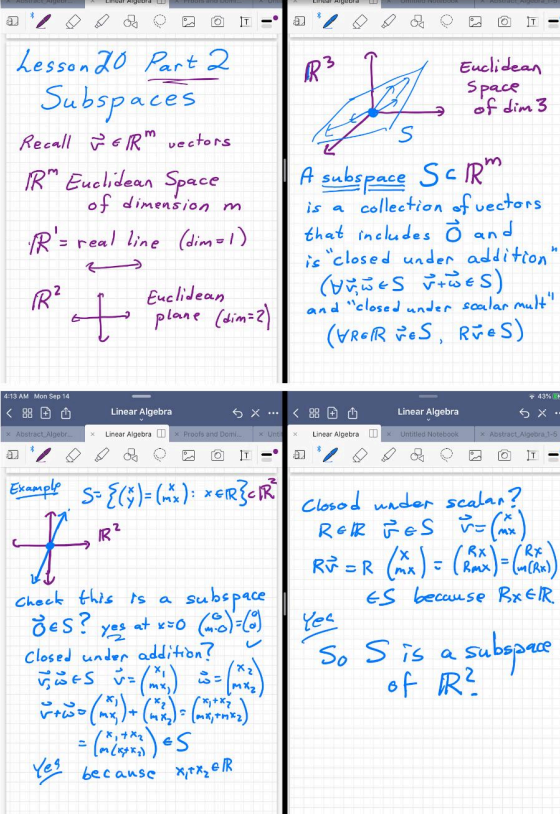 Lesson 20 Part 2
Subspaces
Recall v⃗ ∈ ℝᵐ vectors
ℝᵐ Euclidean Space
of dimension m
ℝ¹ = real line (dim=1)
ℝ² Euclidean
plane (dim=2)
ℝ³ Euclidean
Space
of dim 3
S
A subspace S ⊂ ℝᵐ
is a collection of vectors
that includes 0⃗ and
is "closed under addition"
(∀v⃗,w⃗ ∈ S v⃗+w⃗ ∈ S)
and "closed under scalar mult"
(∀R∈ℝ v⃗∈S, Rv⃗∈S)
4:13 AM Mon Sep 14
Linear Algebra
× Abstract_Algebr... × Linear Algebra × Proofs and Domi... × Unti
Example S = {(x y) = (x mx) : x ∈ ℝ} ⊂ ℝ²
ℝ²
Check this is a subspace
0⃗ ∈ S? yes at x=0 (0 m·0) = (0 0) ✓
Closed under addition?
v⃗,w⃗ ∈ S v⃗ = (x₁ mx₁) w⃗ = (x₂ mx₂)
v⃗+w⃗ = (x₁ mx₁) + (x₂ mx₂) = (x₁+x₂ mx₁+mx₂)
= (x₁+x₂ m(x₁+x₂)) ∈ S
Yes because x₁+x₂ ∈ ℝ
43%
Linear Algebra
× Linear Algebra × Untitled Notebook × Abstract_Algebra_1-5
Closed under scalar?
R∈ℝ v⃗∈S v⃗ = (x mx)
Rv⃗ = R (x mx) = (Rx Rmx) = (Rx m(Rx))
∈S because Rx∈ℝ
Yes
So S is a subspace
of ℝ².